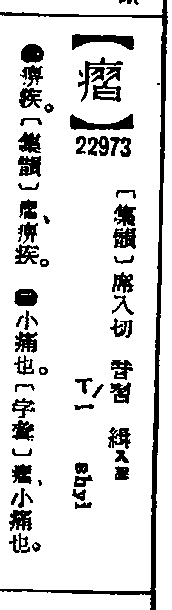 【㿇】
22973
〔集韻〕席入切 音習 緝入聲
ㄒㄧˊ shyi
㊀痹疾。〔集韻〕㿇、痹疾。㊁小痛也。〔字彙〕㿇、小痛也。